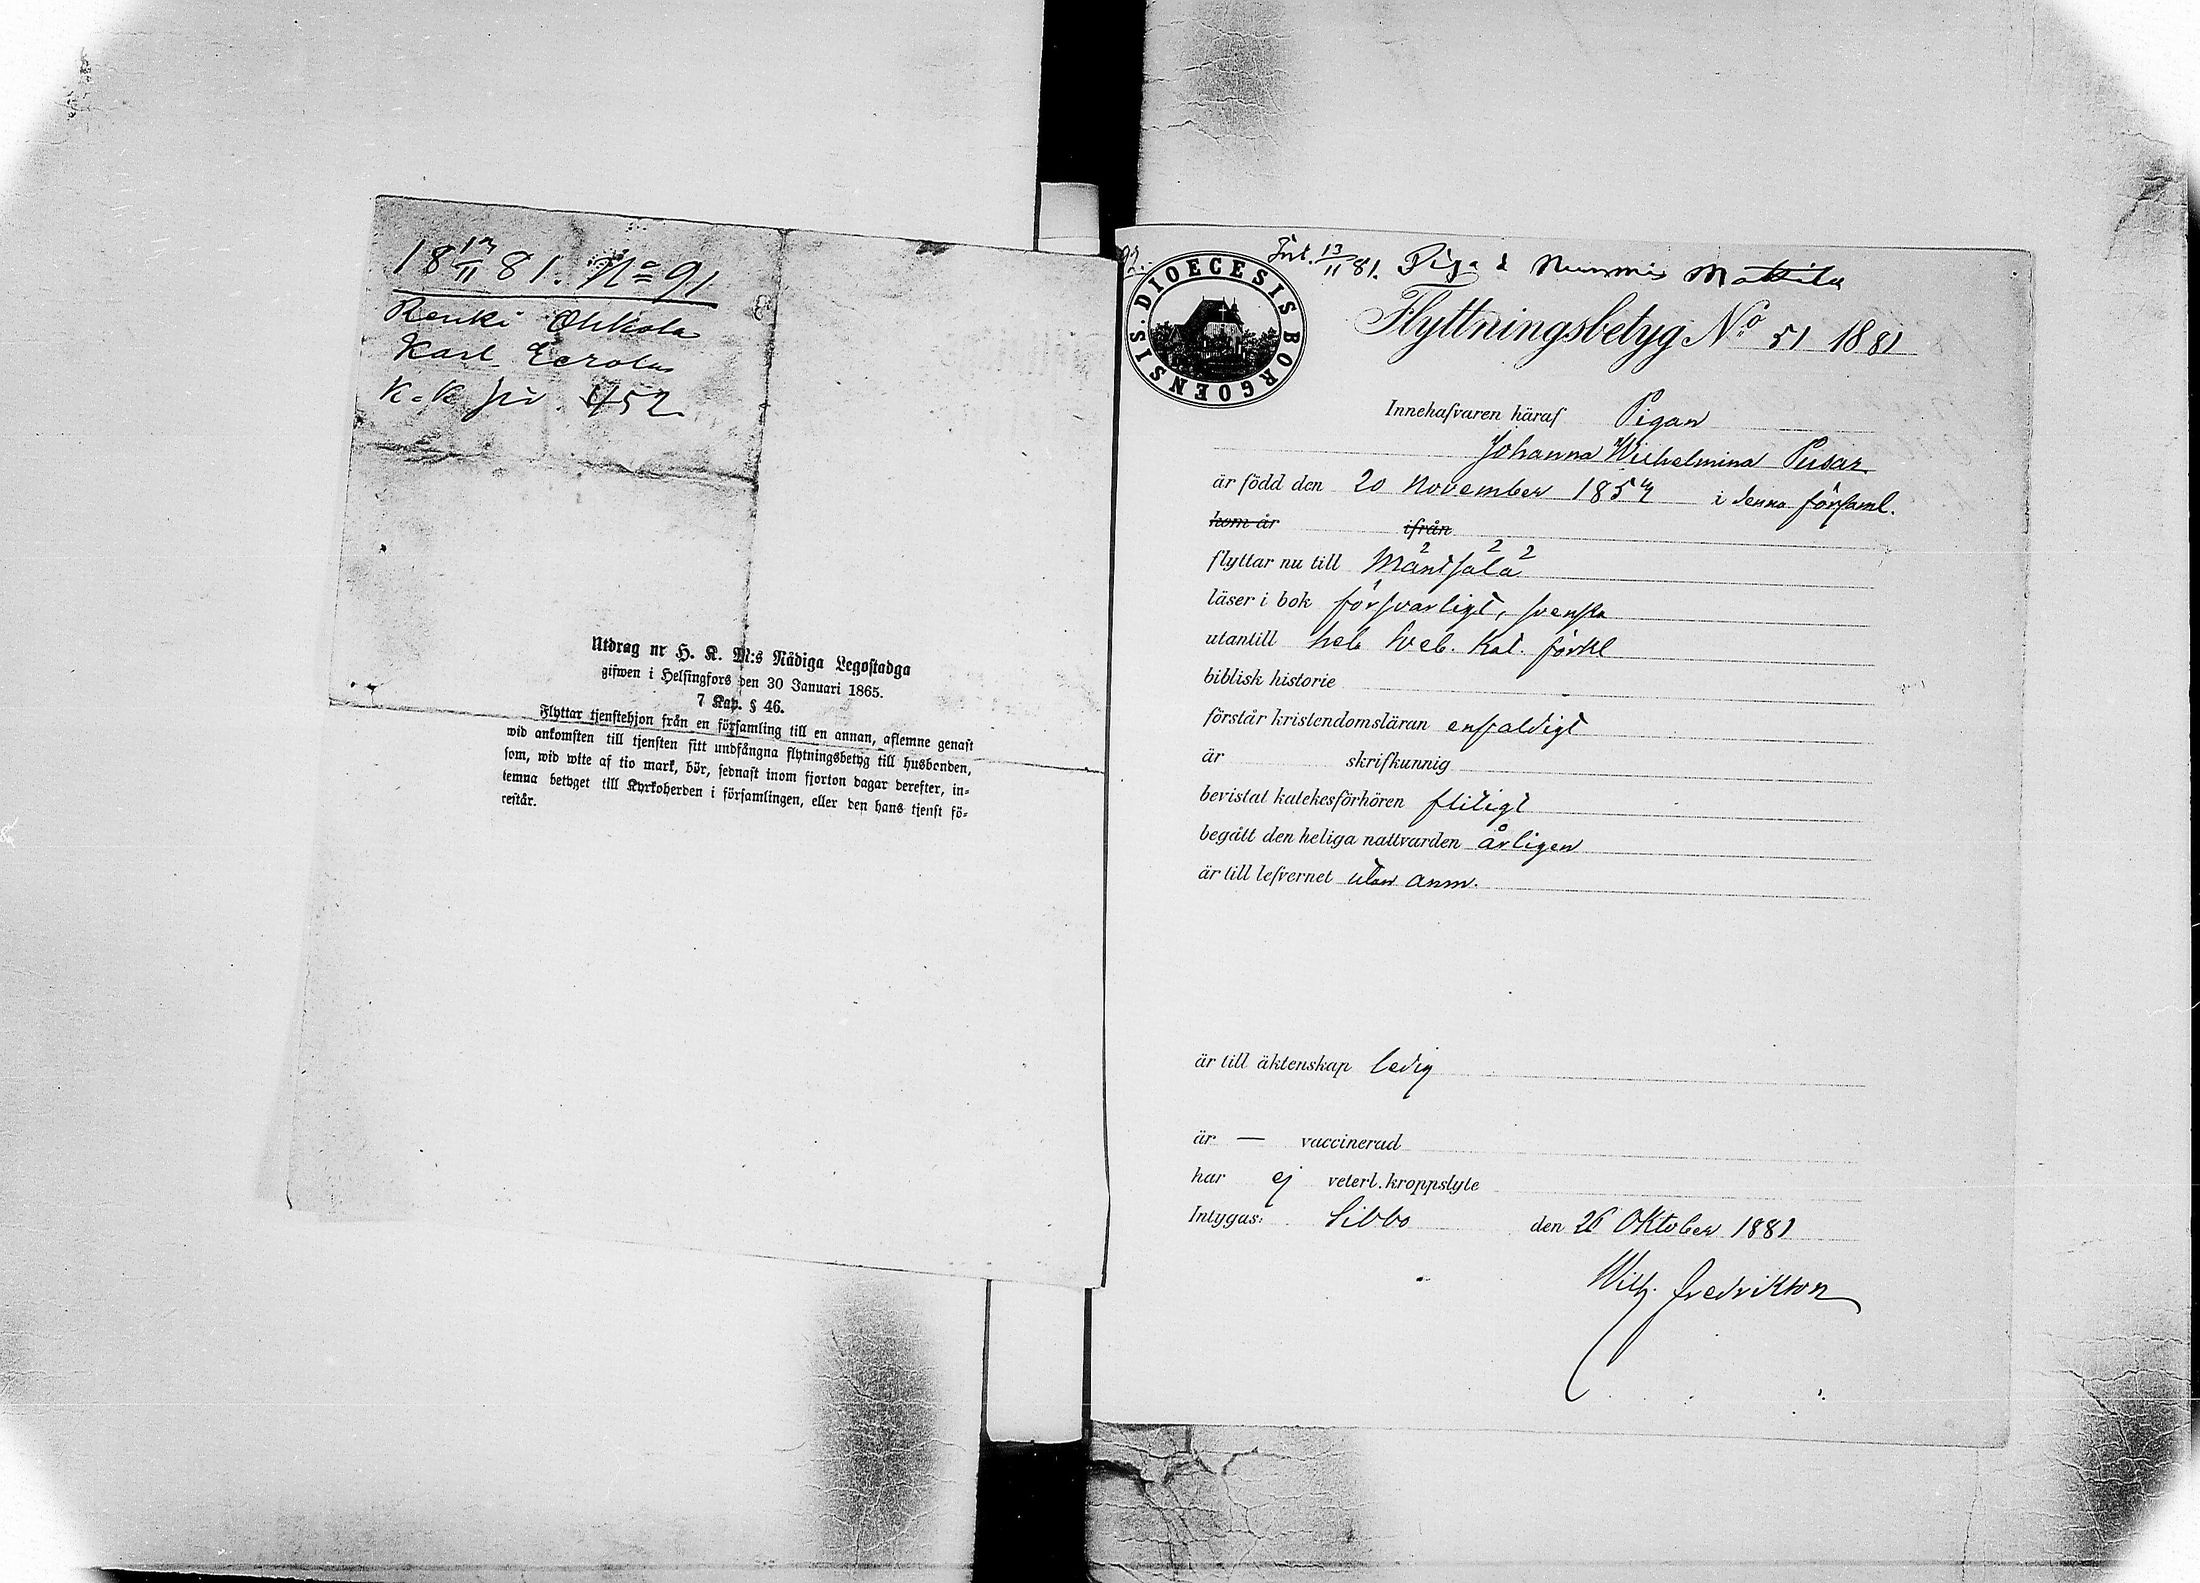 18 13/11 81. No 91
Renki Ohkola
Karl Eerola
K.K. siv. 452.
Utdrag ur H. K. M:s Nådiga Legostadga
gifwen i Helsingfors den 30 Januari 1865.
7 Kap. § 46.
Flyttar tjenstehjon från en församling till en annan, aflemne genast
wid ankomsten till tjensten sitt undfångna flytningsbetyg till husbonden,
som, wid wite af tio mark, bör, sednast inom fjorton dagar derefter, in-
lemna betyget till Kyrkoherden i församlingen, eller den hans tjenst fö-
restår.
92.
Inl. 13/11 81. Piga å Nummis Mattila
DIOECESIS BORGOENSIS.
Flyttningsbetyg No 51 1881
Innehafvaren häraf Pigan
Johanna Wilhelmina Pusar
är född den 20 November 1857 i denna församl.
kom år ifrån
flyttar nu till Mäntsälä
läser i bok försvarligt, svenska
utantill hela Sveb. Kat. förkl
biblisk historie
förstår kristendomsläran enfaldigt
är skrifkunnig
bevistat katekesförhören flitigt
begått den heliga nattvarden årligen
är till lefvernet utan anm.
är till äktenskap ledig
är — vaccinerad
har ej veterl. kroppslyte
Intygas: Sibbo den 26 Oktober 1881
Wilh. Fredrikson